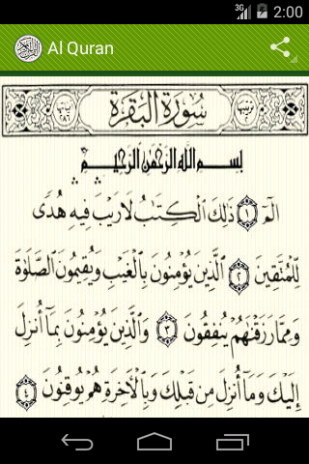 3G 2:00
Al Quran
سُورَةُ الْبَقَرَةِ
بِسْمِ اللَّهِ الرَّحْمَٰنِ الرَّحِيمِ
الٓمٓ ۝١ ذَٰلِكَ الْكِتَٰبُ لَا رَيْبَ فِيهِ هُدًى
لِّلْمُتَّقِينَ ۝٢ الَّذِينَ يُؤْمِنُونَ بِالْغَيْبِ وَيُقِيمُونَ الصَّلَوٰةَ
وَمِمَّا رَزَقْنَٰهُمْ يُنفِقُونَ ۝٣ وَالَّذِينَ يُؤْمِنُونَ بِمَآ أُنزِلَ
إِلَيْكَ وَمَآ أُنزِلَ مِن قَبْلِكَ وَبِالْآخِرَةِ هُمْ يُوقِنُونَ ۝٤